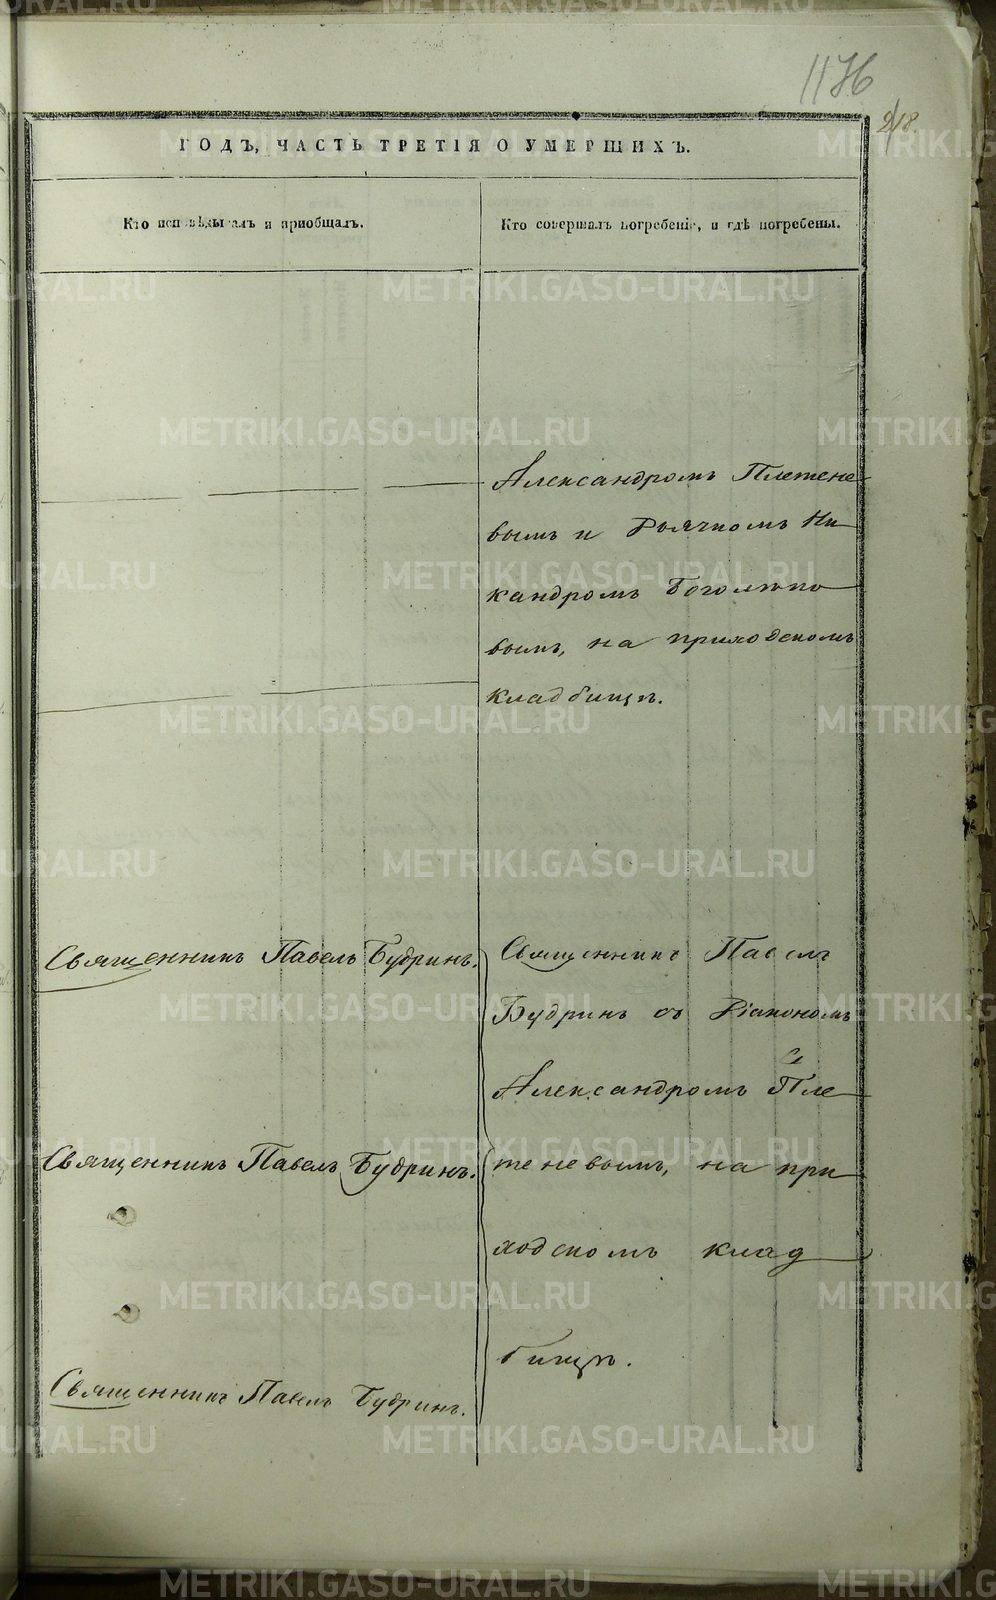 1176
218.
ГОДЪ, ЧАСТЬ ТРЕТІЯ О УМЕРШИХЪ.
Кто исповѣдывалъ и приобщалъ.
Кто совершалъ погребеніе, и гдѣ погребены.
Александромъ Плетене
вымъ и Дьячкомъ Ни
кандромъ Боголѣпо
вымъ, на приходскомъ
кладбищѣ.
Священникъ Павелъ Будринъ.
Священникъ Павелъ
Будринъ съ Діакономъ
Александромъ Пле
теневымъ, на при
ходскомъ клад
бищѣ.
Священникъ Павелъ Будринъ.
Священникъ Павелъ Будринъ.
METRIKI.GASO-URAL.RU